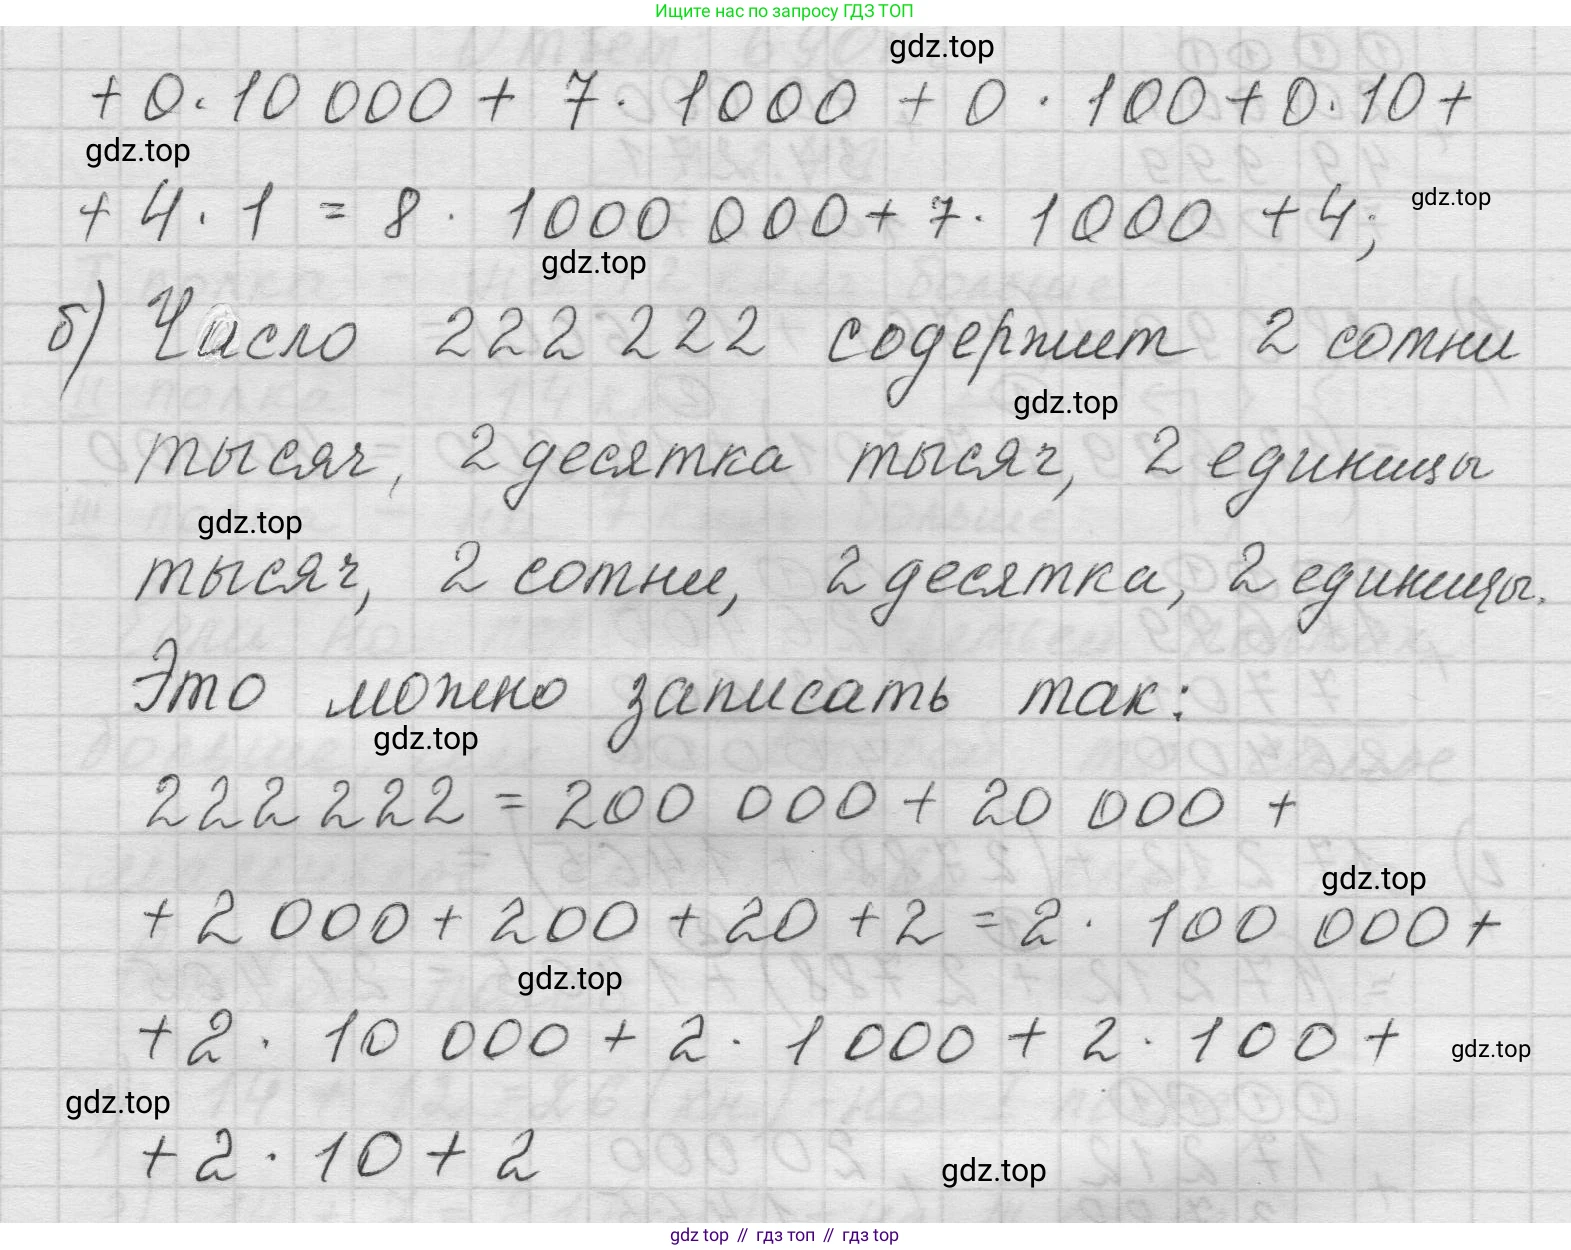 Ищите нас по запросу ГДЗ ТОП
gdz.top
+ 0 · 10 000 + 7 · 1000 + 0 · 100 + 0 · 10 +
gdz.top
+ 4 · 1 = 8 · 1000 000 + 7 · 1000 + 4;
gdz.top
gdz.top
б) Число 222 222 содержит 2 сотни
gdz.top
тысяч, 2 десятка тысяч, 2 единицы
gdz.top
тысяч, 2 сотни, 2 десятка, 2 единицы.
Это можно записать так:
gdz.top
222 222 = 200 000 + 20 000 +
gdz.top
+ 2 000 + 200 + 20 + 2 = 2 · 100 000 +
gdz.top
+ 2 · 10 000 + 2 · 1 000 + 2 · 100 +
gdz.top
gdz.top
+ 2 · 10 + 2
gdz.top
gdz top // гдз топ // гдз top